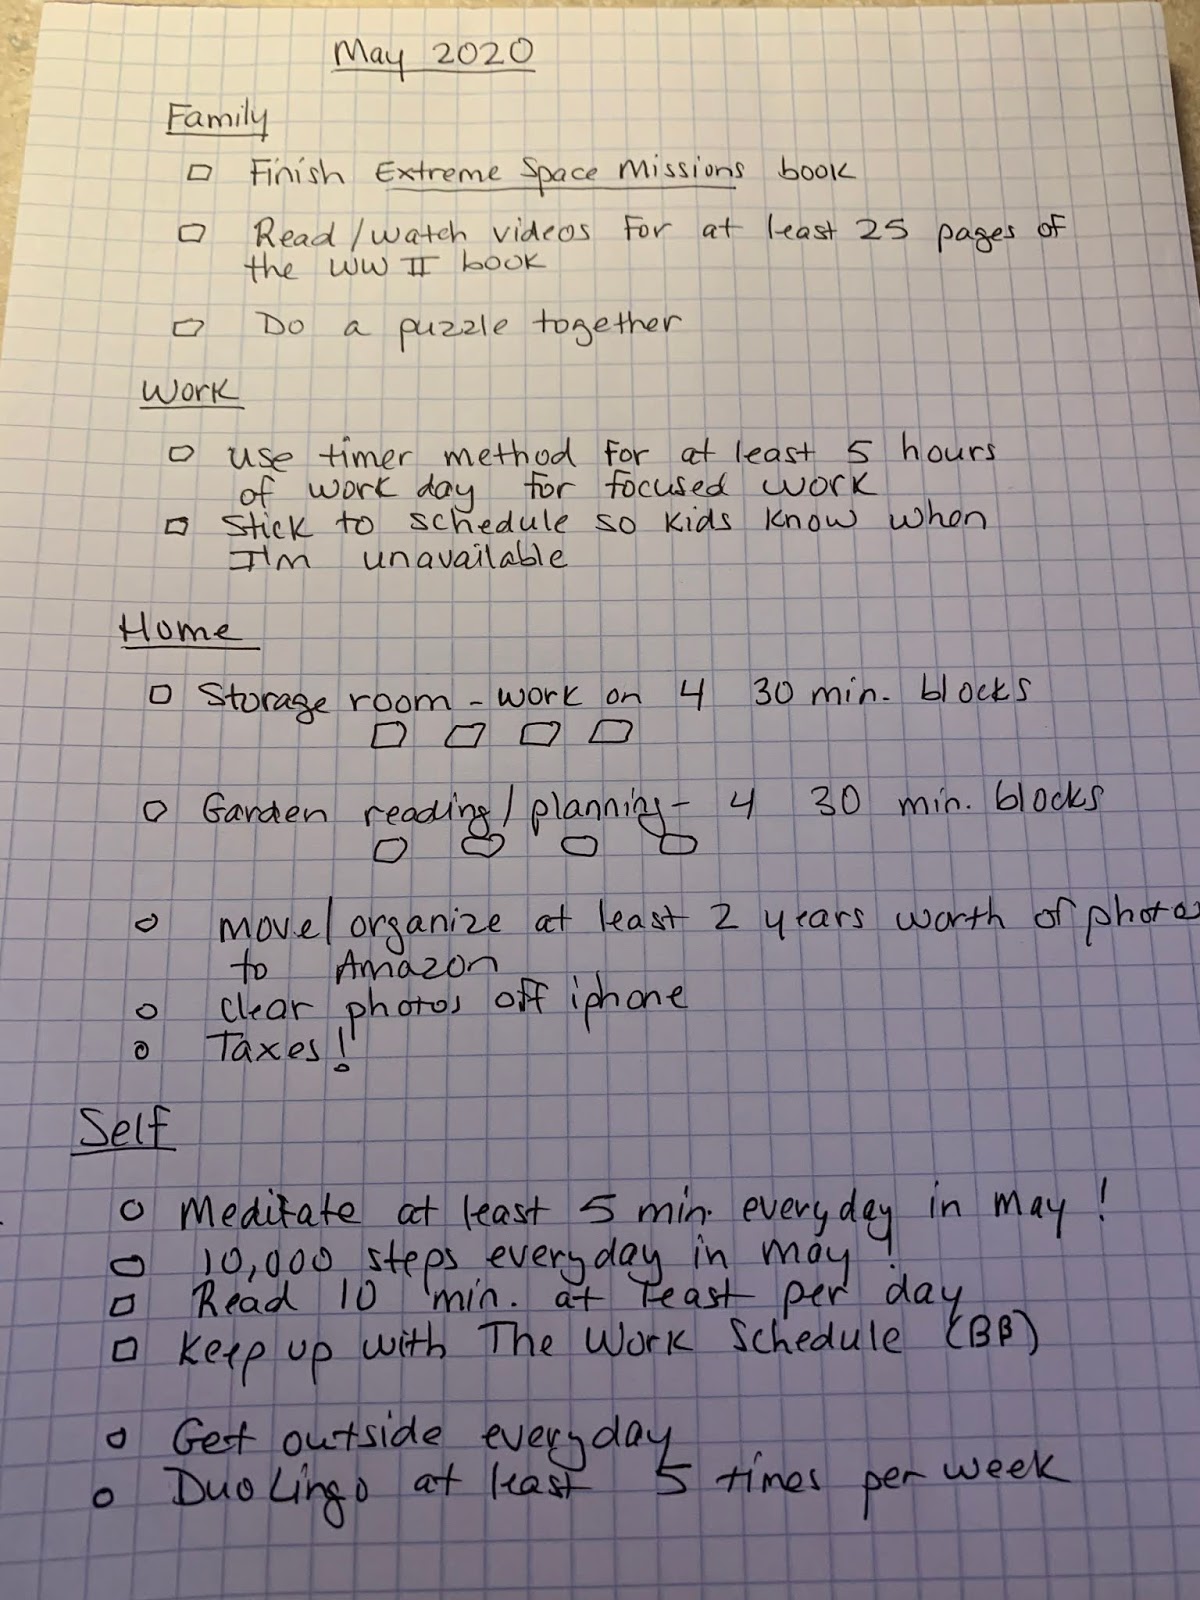 May 2020
Family
Finish Extreme Space Missions book
Read/watch videos for at least 25 pages of
the WWII book
Do a puzzle together
Work
use timer method for at least 5 hours
of work day for focused work
Stick to schedule so kids know when
I'm unavailable
Home
Storage room - work on 4 30 min. blocks
Garden reading/planning - 4 30 min. blocks
move/organize at least 2 years worth of photos
to Amazon
clear photos off iphone
Taxes!
Self
Meditate at least 5 min. everyday in May!
10,000 steps everyday in May!
Read 10 min. at least per day
Keep up with The Work Schedule (BB)
Get outside everyday
DuoLingo at least 5 times per week